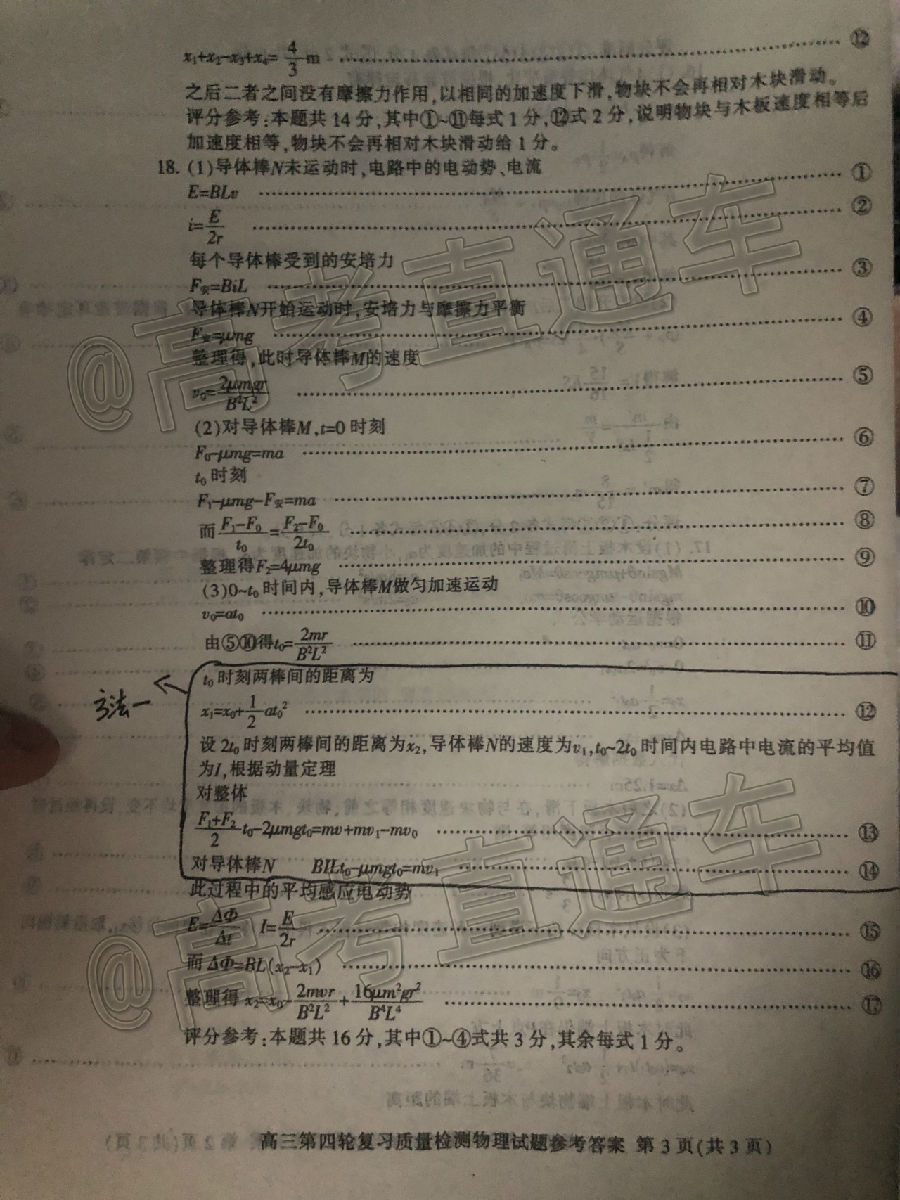 x₁+x₂-x₃+x₄=4/3 m ⑫
之后二者之间没有摩擦力作用,以相同的加速度下滑,物块不会再相对木块滑动。
评分参考:本题共14分,其中①~⑪每式1分,⑫式2分,说明物块与木板速度相等后
加速度相等,物块不会再相对木块滑动给1分。
18. (1)导体棒N未运动时,电路中的电动势、电流
E=BLv ①
i=E/2r ②
每个导体棒受到的安培力
F安=BiL ③
导体棒N开始运动时,安培力与摩擦力平衡
F安=μmg ④
整理得,此时导体棒M的速度
v₀=2μmgr/B²L² ⑤
(2)对导体棒M,t=0时刻
F₀-μmg=ma ⑥
t₀时刻
F₁-μmg-F安=ma ⑦
而 F₁-F₀/t₀=F₂-F₀/2t₀ ⑧
整理得F₂=4μmg ⑨
(3)0~t₀时间内,导体棒M做匀加速运动
v₀=at₀ ⑩
由⑤⑩得t₀=2mr/B²L² ⑪
t₀时刻两棒间的距离为
方法一
x₁=x₀+1/2 at₀² ⑫
设2t₀时刻两棒间的距离为x₂,导体棒N的速度为v₁,t₀~2t₀时间内电路中电流的平均值
为I,根据动量定理
对整体
F₁+F₂/2 t₀-2μmgt₀=mv+mv₁-mv₀ ⑬
对导体棒N BILt₀-μmgt₀=mv₁ ⑭
此过程中的平均感应电动势
E=ΔΦ/Δt I=E/2r ⑮
而ΔΦ=BL(x₂-x₁) ⑯
整理得 x₂=x₀-2mvr/B²L²+16μm²gr²/B⁴L⁴ ⑰
评分参考:本题共16分,其中①~④式共3分,其余每式1分。
高三第四轮复习质量检测物理试题参考答案 第3页(共3页)
@高考直通车
@高考直通车